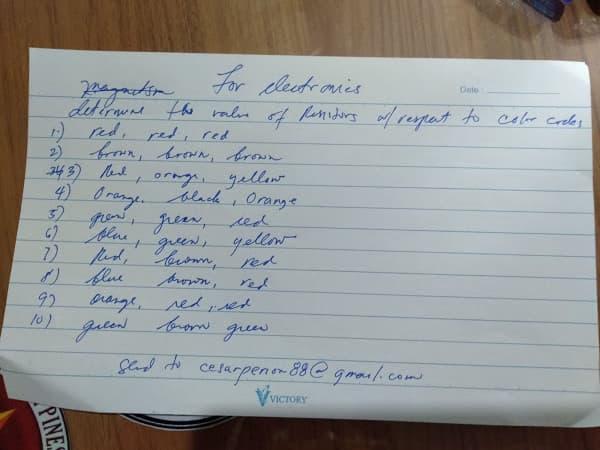 For electronics
Date:
determine the value of Resistors w/ respect to color codes
1.) red, red, red
2) brown, brown, brown
3) Red, orange, yellow
4) Orange, black, Orange
5) green, green, red
6) blue, green, yellow
7) Red, brown, red
8) blue brown, red
9) orange, red, red
10) green brown green
Send to cesarperion88@gmail.com
VICTORY
PINES